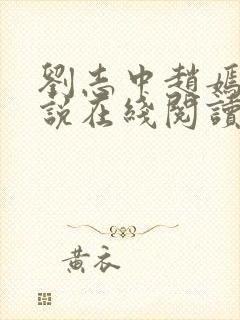 劉志中趙嫣
說在綫閱讀
黃衣